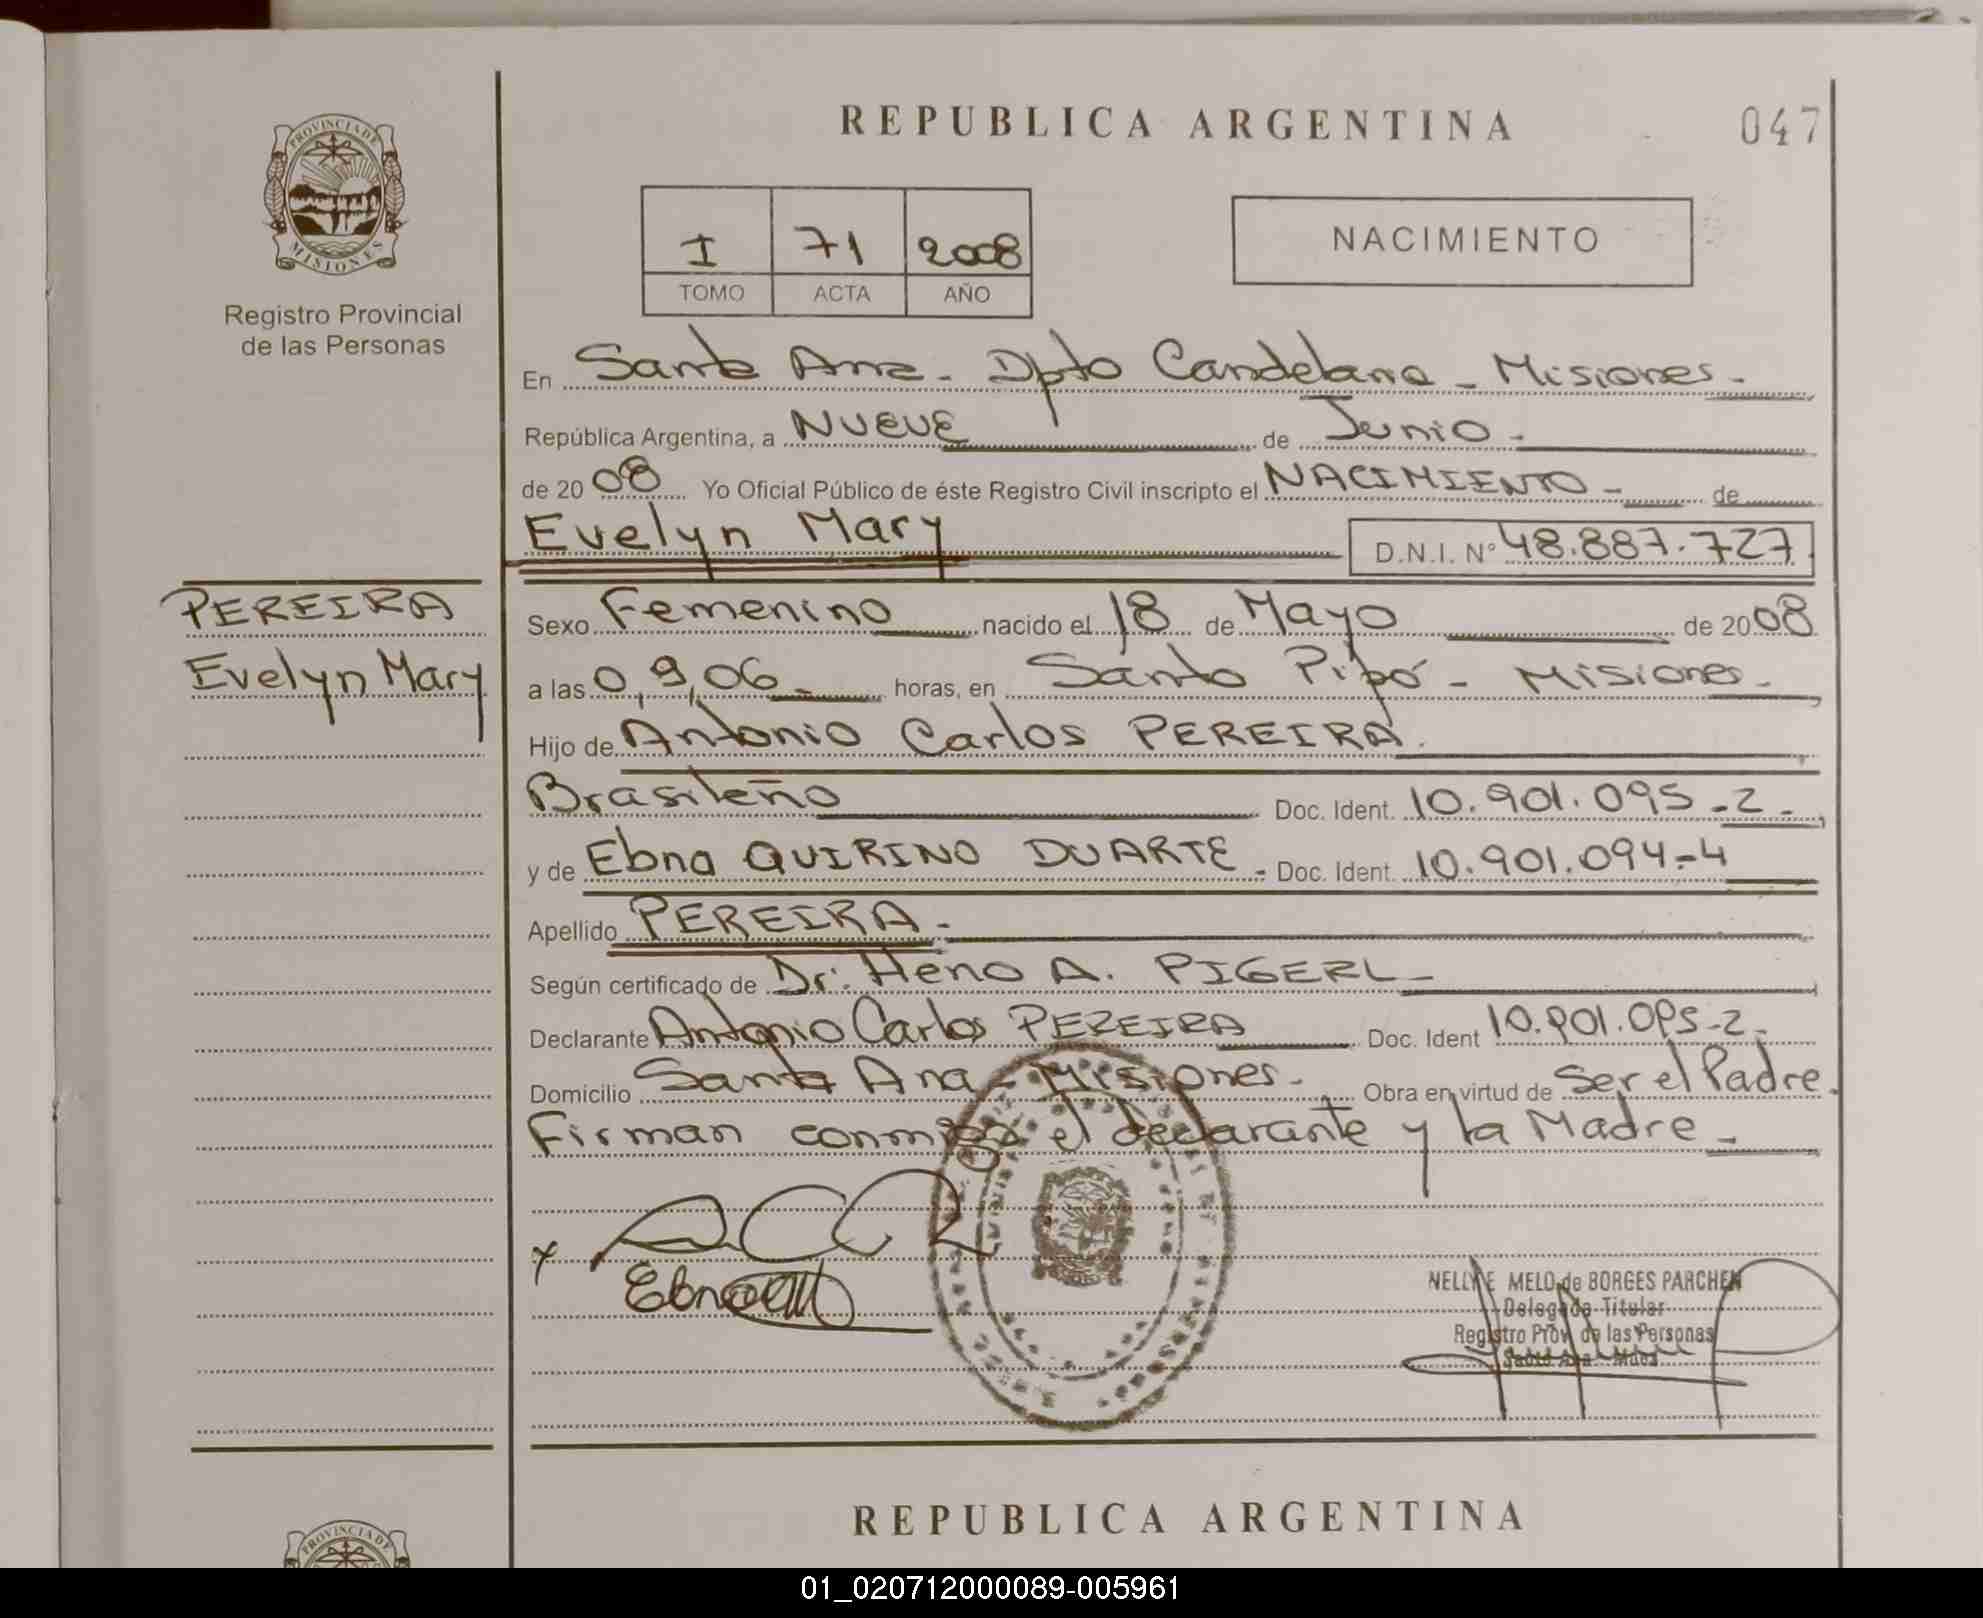 REPUBLICA ARGENTINA
047
PROVINCIA DE
MISIONES
Registro Provincial
de las Personas
I 71 2008
TOMO ACTA AÑO
NACIMIENTO
En Santa Ana - Dpto Candelaria - Misiones -
República Argentina, a NUEVE de Junio -
de 2008 Yo Oficial Público de éste Registro Civil inscripto el NACIMIENTO - de
Evelyn Mary D.N.I. Nº 48.887.727
PEREIRA
Evelyn Mary
Sexo Femenino nacido el 18 de Mayo de 2008
a las 0,9,06 - horas, en Santo Pipó - Misiones -
Hijo de Antonio Carlos PEREIRA.
Brasileño Doc. Ident. 10.901.095-2-
y de Ebna QUIRINO DUARTE - Doc. Ident. 10.901.094-4
Apellido PEREIRA -
Según certificado de Dr. Heno A. PIGERL -
Declarante Antonio Carlos PEREIRA Doc. Ident 10.901.095-2-
Domicilio Santa Ana - Misiones - Obra en virtud de Ser el Padre.
Firman conmigo el declarante y la Madre -
NELLY E MELO de BORGES PARCHEN
Delegada Titular
Registro Prov. de las Personas
Santa Ana - Mnes
REPUBLICA ARGENTINA
PROVINCIA DE
01_020712000089-005961